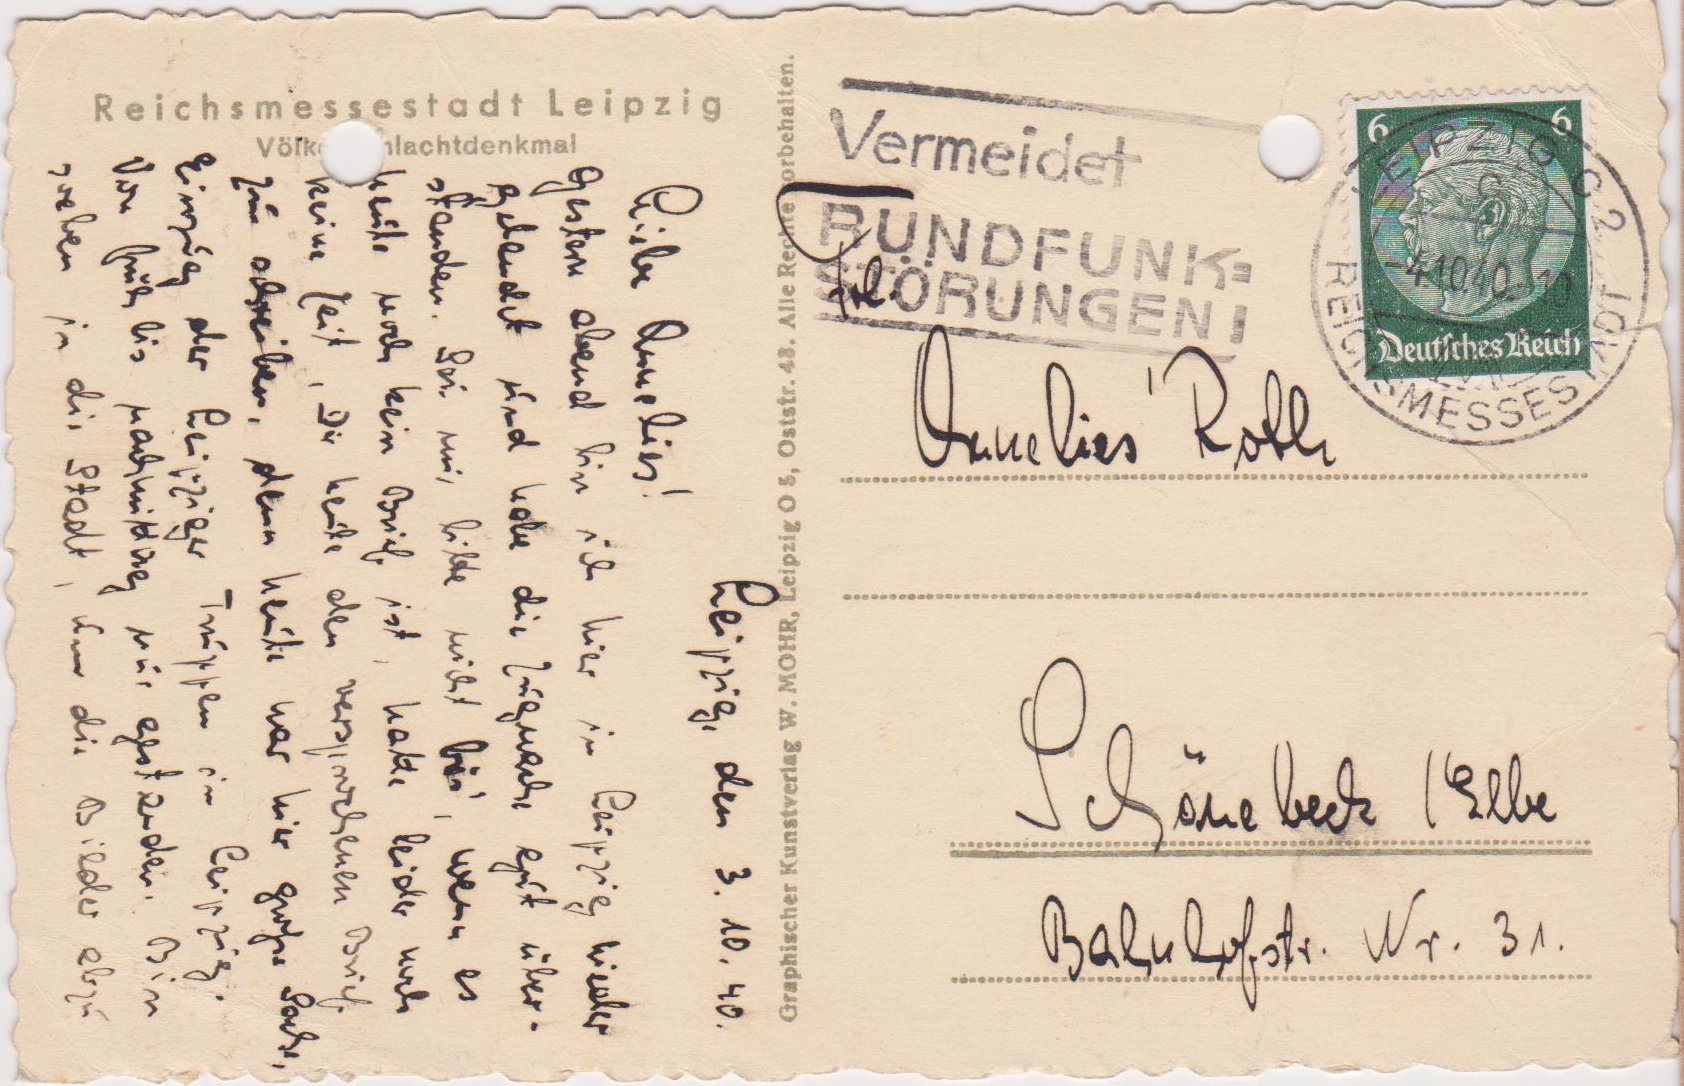 Reichsmessestadt Leipzig
Völke hlachtdenkmal
Leipzig, den 3. 10. 40.
Liebe Annelies!
Gestern abend bin ich hier in Leipzig wieder
gelandet und habe die Zugreise gut über-
standen. Sei mir bitte nicht bös', wenn es
heute noch kein Brief ist, hatte leider noch
keine Zeit, Dir heute den versprochenen Brief
zu schreiben, denn heute war hier große Sache,
Einzug der Leipziger Truppen in Leipzig.
Von früh bis nachmittag nur gestanden. Bin
soeben in die Stadt, um die Bilder abzu
Graphischer Kunstverlag W. MOHR, Leipzig O 5, Oststr. 48. Alle Rechte vorbehalten.
Vermeidet
RUNDFUNK-
STÖRUNGEN!
6 6
Deutsches Reich
LEIPZIG C 2
-4.10.40.-10
REICHSMESSESTADT
Frl.
Annelies Roth
Schönebeck /Elbe
Bahnhofstr. Nr. 31.